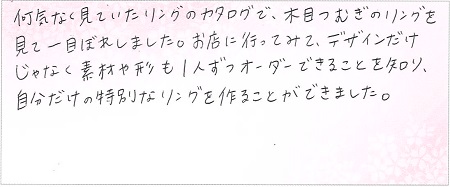 何気なく見ていたリングのカタログで、木目つむぎのリングを
見て一目ぼれしました。お店に行ってみて、デザインだけ
じゃなく素材や形も1人ずつオーダーできることを知り、
自分だけの特別なリングを作ることができました。